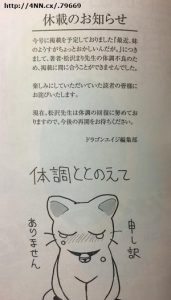 http://4NN.cx/.79669
休載のお知らせ
今号に掲載を予定しておりました「最近、妹
のようすがちょっとおかしいんだが。」につき
まして、著者・松沢まり先生の体調不良のた
め、掲載に間に合うことができませんでした。
楽しみにしていただいていた読者の皆様に
お詫びいたします。
現在、松沢先生は体調の回復に努めてお
りますので、今後の再開をお待ちください。
ドラゴンエイジ編集部
体調ととのえて
申し訳
ありません